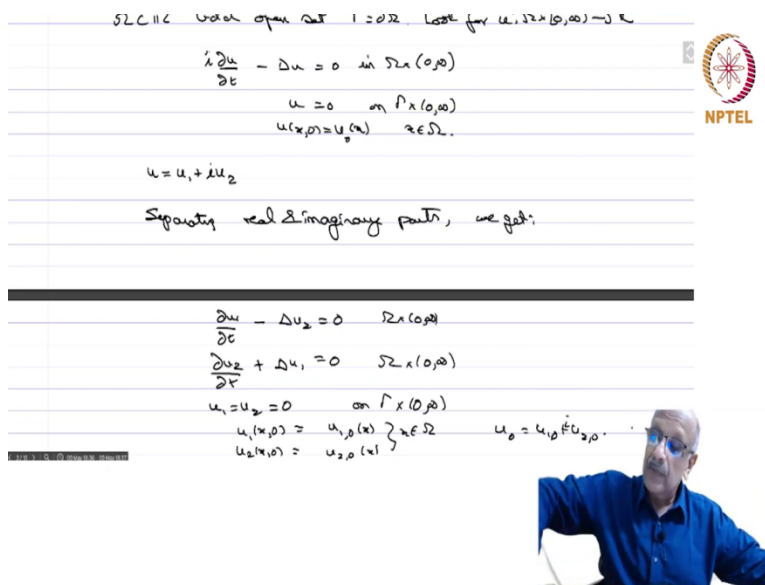 Ω ⊂ ℝ open set Γ = ∂Ω. Look for u: Ω×(0,∞) → ℝ
i ∂u/∂t - Δu = 0 in Ω×(0,∞)
u = 0 on Γ×(0,∞)
u(x,0) = u₀(x) x∈Ω.
NPTEL
u = u₁ + iu₂
Separating real & imaginary parts, we get:
∂u₁/∂t - Δu₂ = 0 Ω×(0,∞)
∂u₂/∂t + Δu₁ = 0 Ω×(0,∞)
u₁ = u₂ = 0 on Γ×(0,∞)
u₁(x,0) = u₁,₀(x) } x∈Ω u₀ = u₁,₀ + iu₂,₀.
u₂(x,0) = u₂,₀(x)